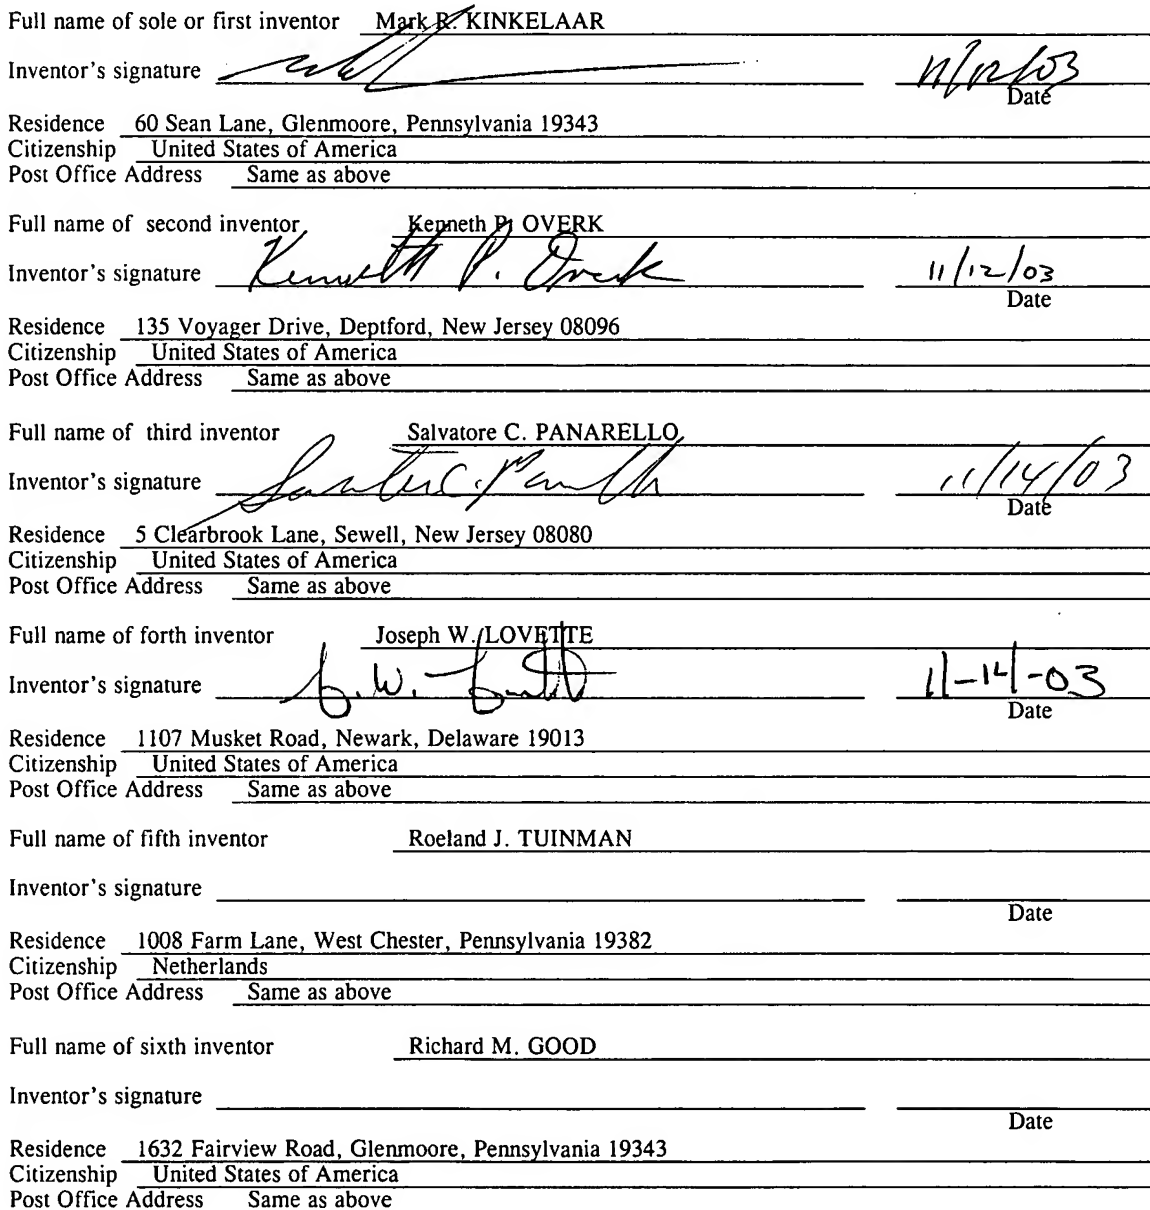 Full name of sole or first inventor Mark R. KINKELAAR
Inventor's signature 11/12/03
Date
Residence 60 Sean Lane, Glenmoore, Pennsylvania 19343
Citizenship United States of America
Post Office Address Same as above
Full name of second inventor Kenneth P. OVERK
Inventor's signature Kenneth P. Overk 11/12/03
Date
Residence 135 Voyager Drive, Deptford, New Jersey 08096
Citizenship United States of America
Post Office Address Same as above
Full name of third inventor Salvatore C. PANARELLO
Inventor's signature 11/14/03
Date
Residence 5 Clearbrook Lane, Sewell, New Jersey 08080
Citizenship United States of America
Post Office Address Same as above
Full name of forth inventor Joseph W. LOVETTE
Inventor's signature J.W. 11-14-03
Date
Residence 1107 Musket Road, Newark, Delaware 19013
Citizenship United States of America
Post Office Address Same as above
Full name of fifth inventor Roeland J. TUINMAN
Inventor's signature
Date
Residence 1008 Farm Lane, West Chester, Pennsylvania 19382
Citizenship Netherlands
Post Office Address Same as above
Full name of sixth inventor Richard M. GOOD
Inventor's signature
Date
Residence 1632 Fairview Road, Glenmoore, Pennsylvania 19343
Citizenship United States of America
Post Office Address Same as above